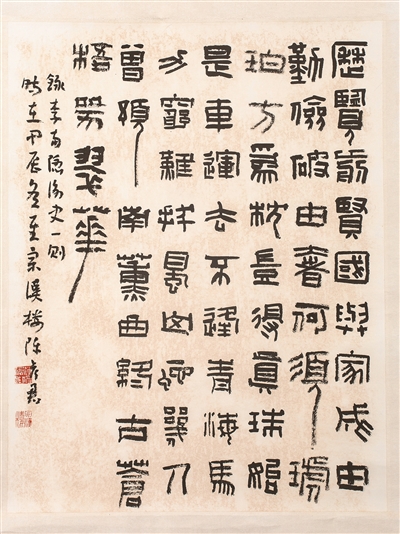 歷覽前賢國與家成由
勤儉破由奢何須琥
珀方為枕豈得真珠始
是車運去不逢青海馬
力窮難拔蜀山蛇幾人
曾預南薰曲終古蒼
梧哭翠華
錄李商隱詠史一則
時在甲辰冬至溪樓陳